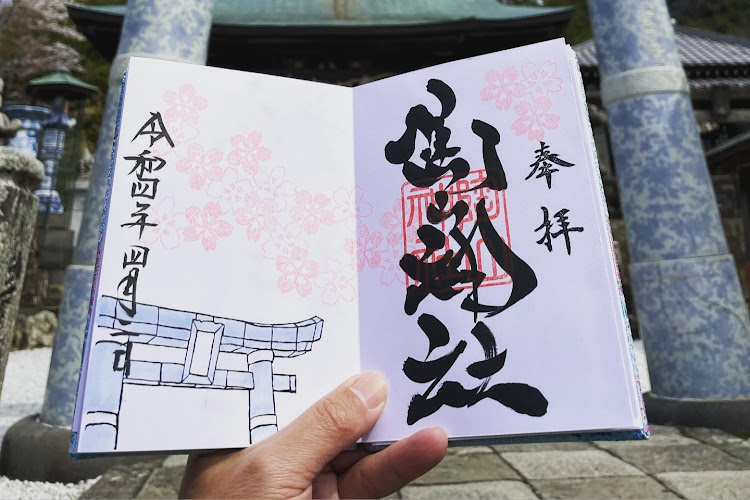 奉拝
陶山神社
陶山
神社
令和四年四月二日